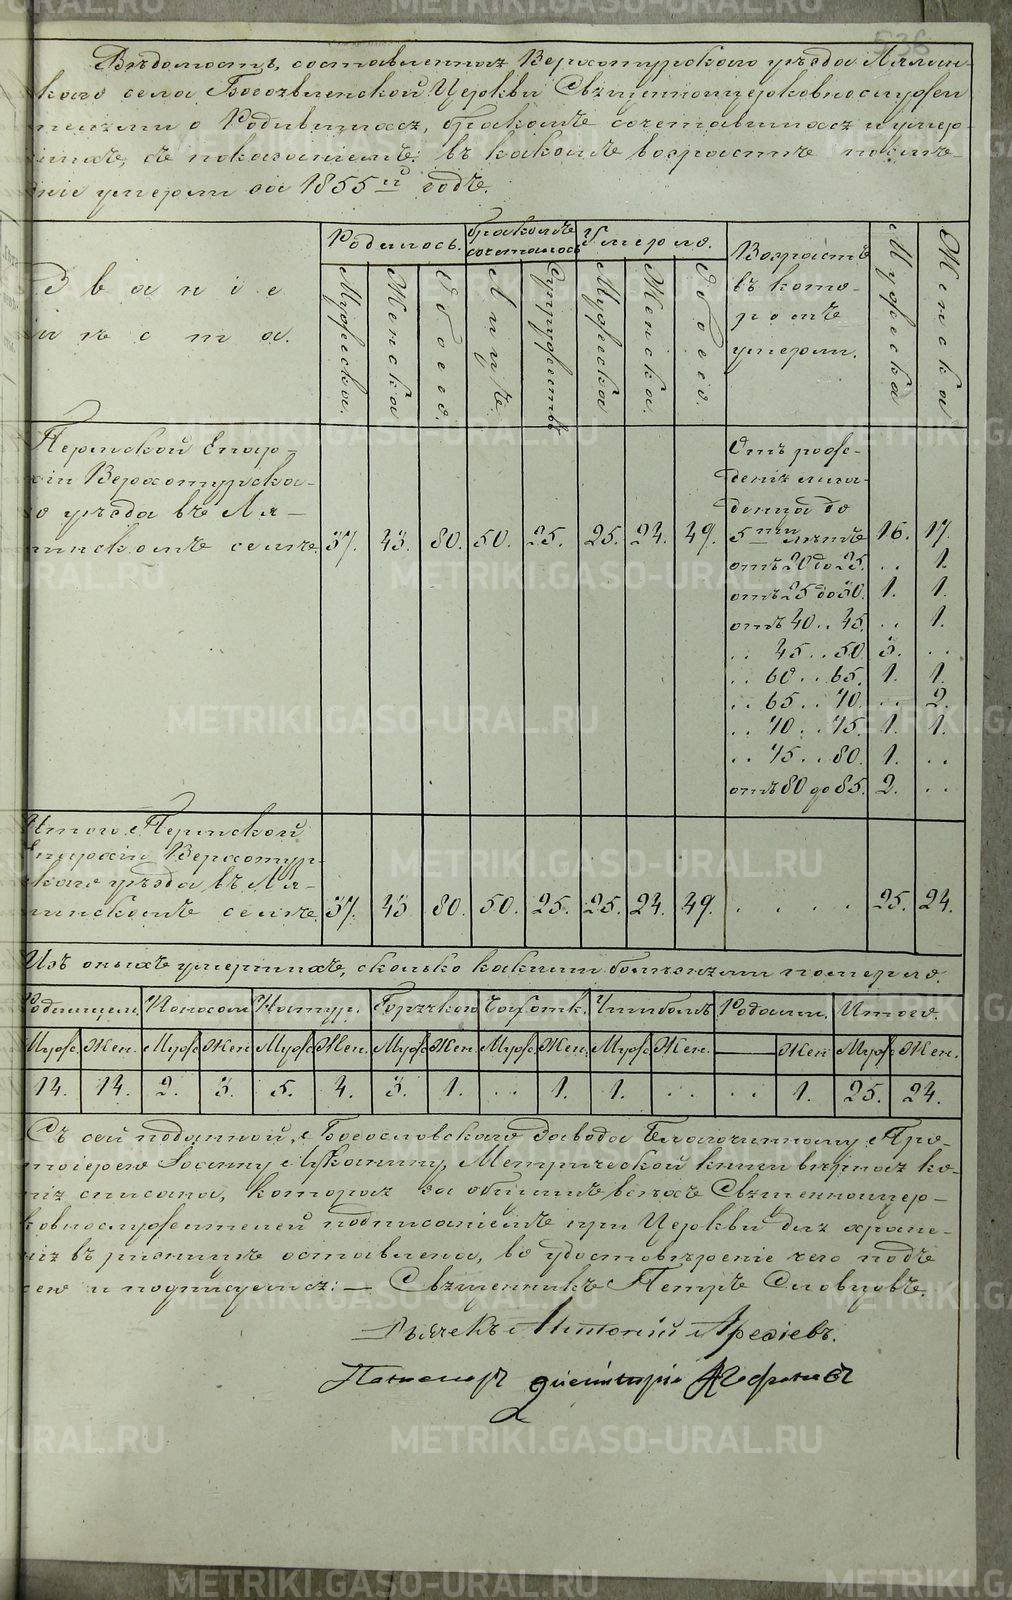 536
Вѣдомость, составленная Верхотурскаго уѣзда Лялин-
скаго села Богоявленской Церкви Священноцерковнослужи
телями о Родившихся, бракомъ сочетавшихся и умер-
шихъ, съ показаніемъ: въ какомъ возрастѣ
умерли за 1855й годъ.
Званіе
мѣста.
Родилось.
Мужеска.
Женска
Обоего.
бракомъ
сочеталось
Лицъ
Супружествъ
Умерло.
Мужеска
Женска.
Обоего.
Возрастъ
въ кото-
ромъ
умерли.
Мужеска
Женска
Пермской Епар-
хіи Верхотурска-
го уѣзда въ Ля-
линскомъ селѣ 37. 43. 80. 50. 25. 25. 24. 49.
Отъ рож-
денія мла-
денца до
5ти лѣтъ 16. 17.
отъ 20 до 25. .. 1.
отъ 25 до 30. 1. 1.
отъ 40 .. 45. .. 1.
.. 45 .. 50. 3. ..
.. 60 .. 65. 1. 1.
.. 65 .. 70. .. 2.
.. 70 .. 75. 1. 1.
.. 75 .. 80. 1. ..
отъ 80 до 85. 2. ..
Итого Пермской
Епархіи Верхотур-
скаго уѣзда въ Ля-
линскомъ селѣ 37. 43 80. 50. 25. 25. 24. 49. . . . . 25. 24.
Изъ оныхъ умершихъ, сколько какими болѣзнями померло.
Родимцем. Поносом Натур. Горячкою Чахотк. Родами. Итого.
Муж. Жен. Муж Жен Муж. Жен. Муж Жен. Муж. Жен. Муж Жен. — Жен Муж Жен.
14. 14. 2. 3. 5. 4. 3. 1. .. 1. 1. .. .. 1. 25. 24.
Съ сей поданной, Богословскаго Завода Благочинному Про-
тоіерею Іоанну Метрической книги вѣрная ко-
пія списана, которая за общимъ всѣхъ Священноцер-
ковнослужителей подписаніемъ при Церкви для хране-
нія въ ризницѣ оставлена, во удостовѣреніе чего подъ
сею и подписуемся: — Священникъ Петръ Словцовъ
Дьячекъ Антоній Арефіевъ.
Пономарь Димитрій
METRIKI.GASO-URAL.RU